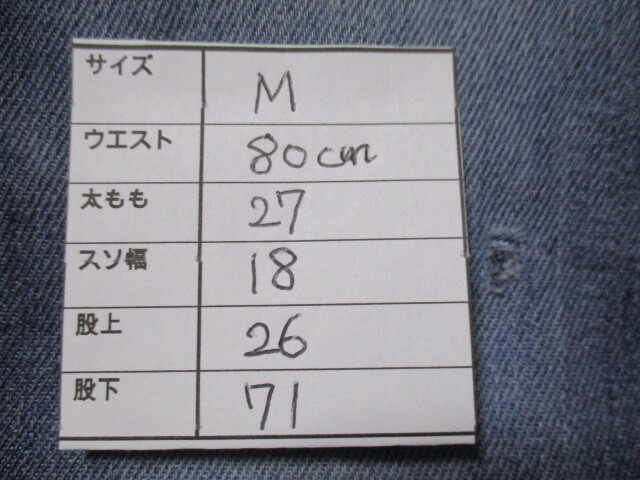 サイズ M
ウエスト 80cm
太もも 27
スソ幅 18
股上 26
股下 71